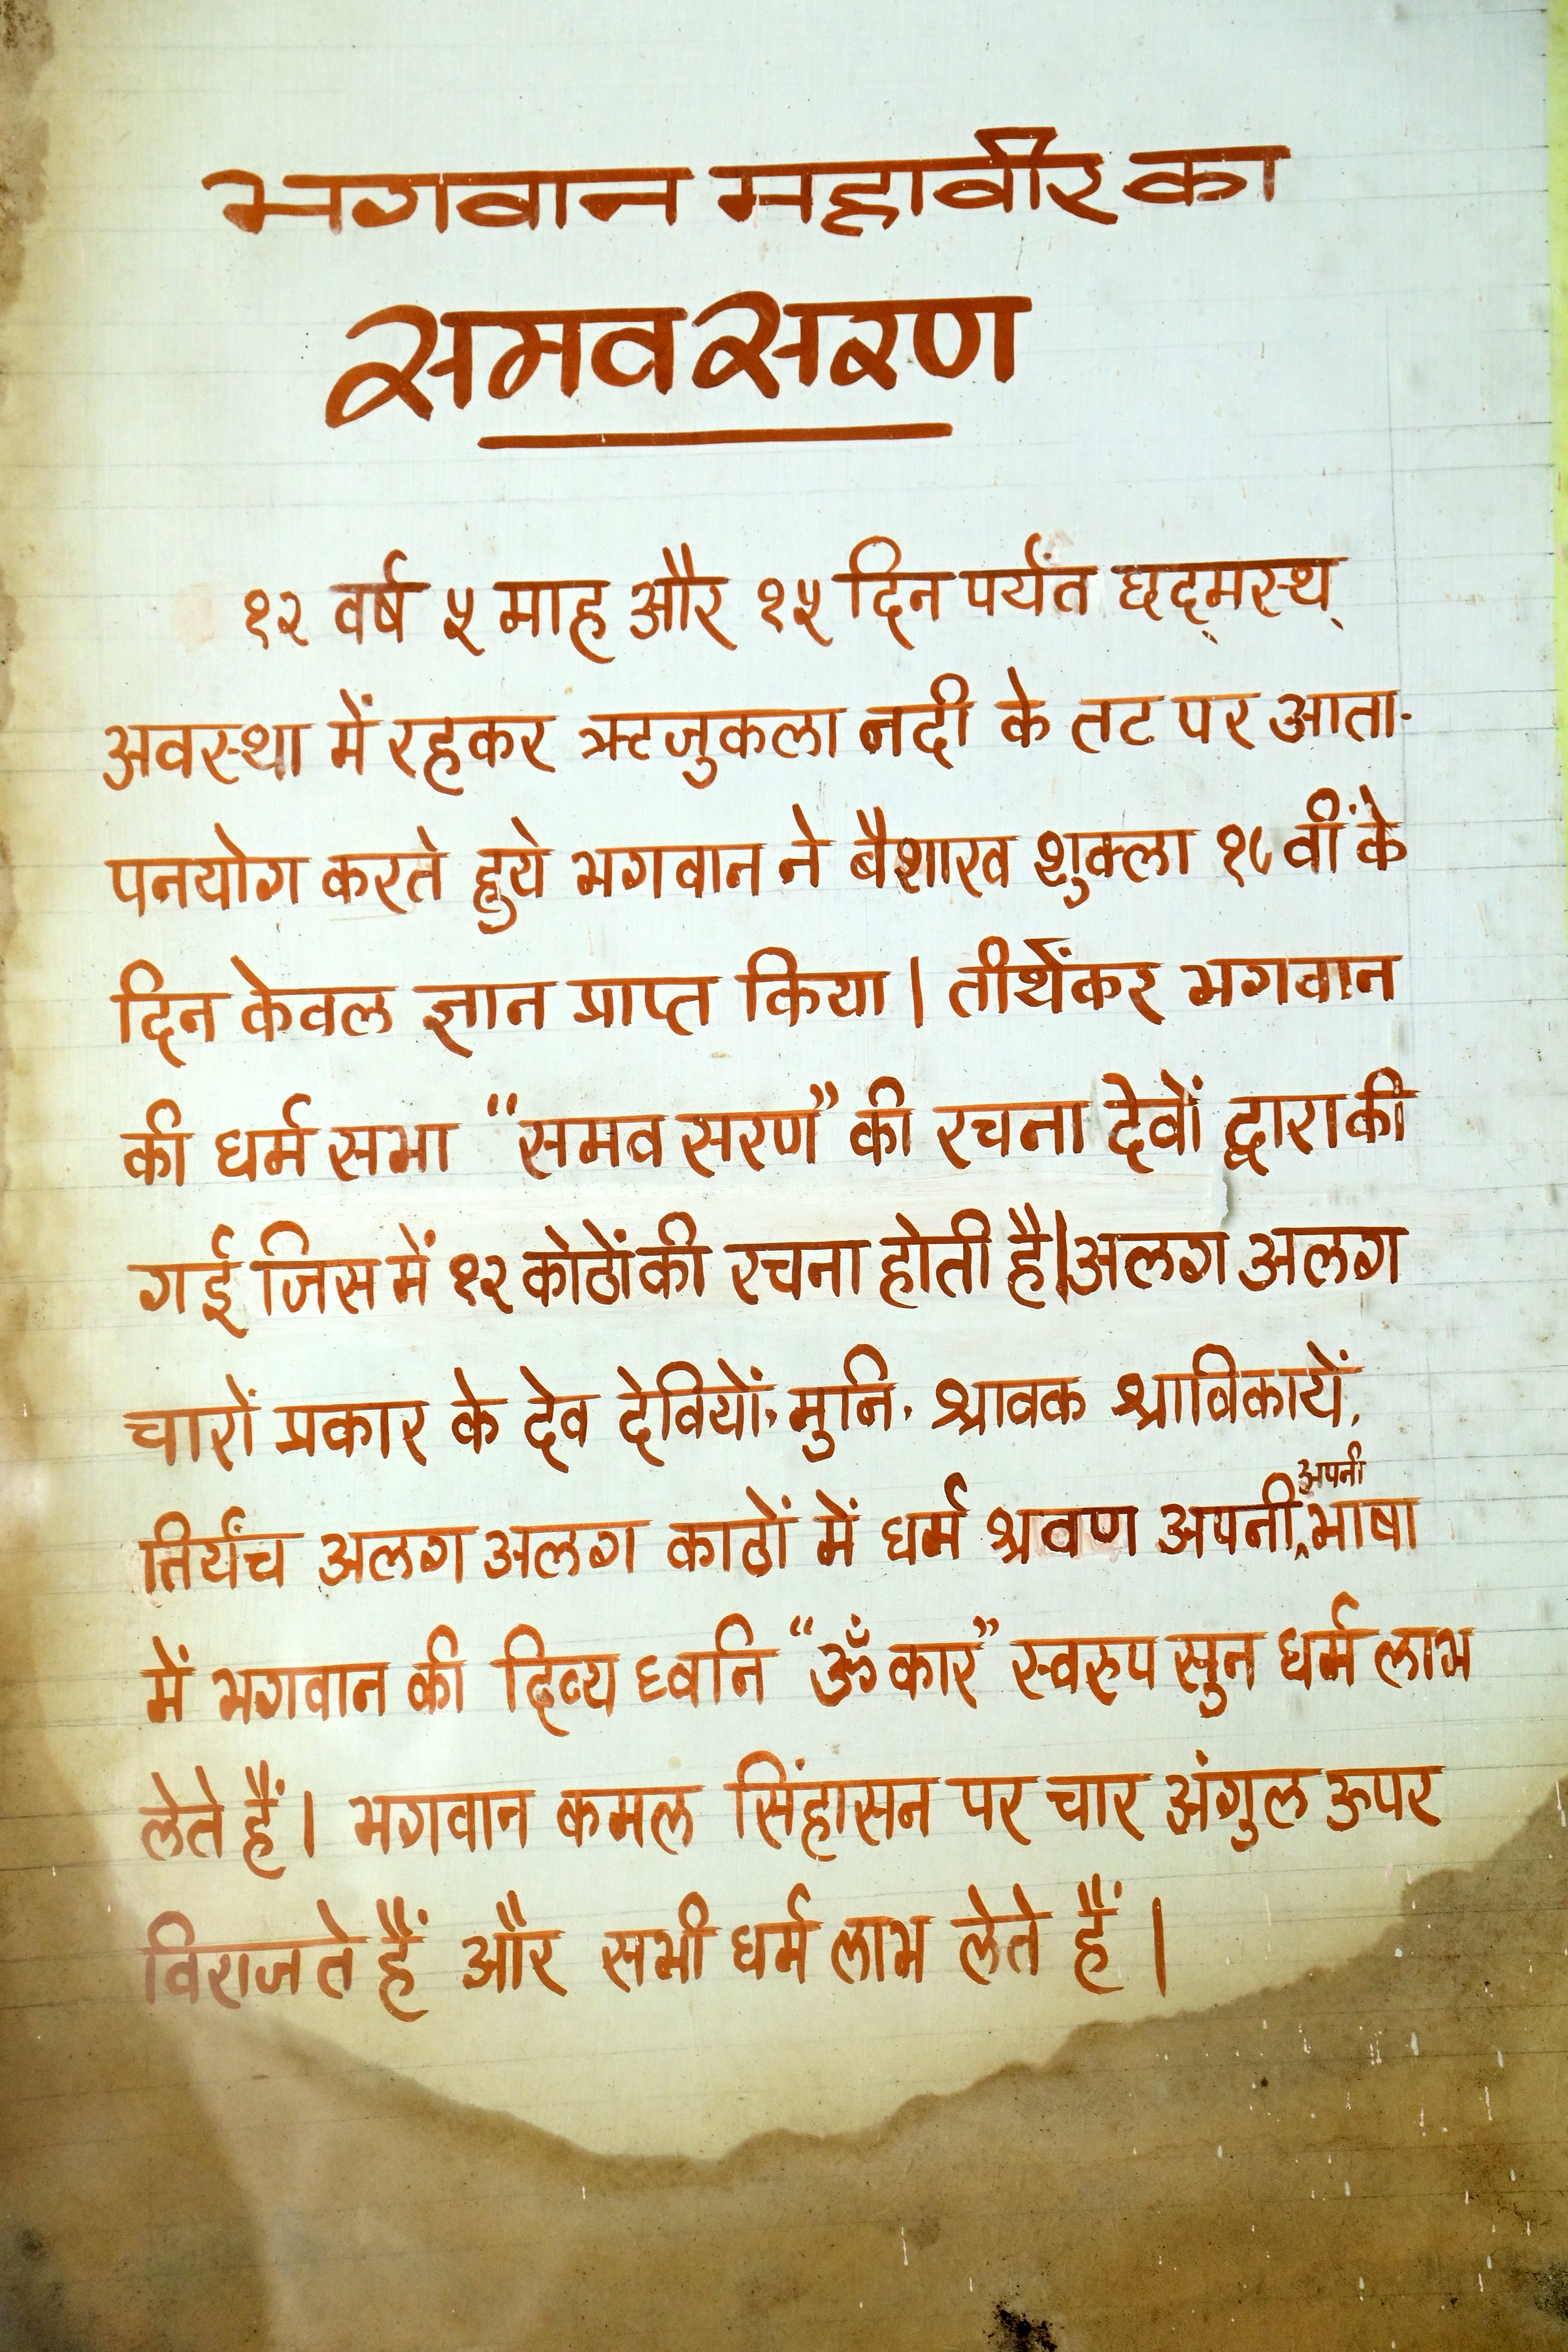 भगवान महावीर का
समवसरण
१२ वर्ष ५ माह और १५ दिन पर्यंत छद्मस्थ्
अवस्था में रहकर ऋजुकला नदी के तट पर आता-
पनयोग करते हुये भगवान ने बैशाख शुक्ला १० वीं के
दिन केवल ज्ञान प्राप्त किया । तीर्थंकर भगवान
की धर्म सभा "समवसरण" की रचना देवों द्वारा की
गई जिस में १२ कोठों की रचना होती है। अलग अलग
चारों प्रकार के देव देवियों, मुनि, श्रावक श्राविकायें,
तिर्यंच अलग अलग काठों में धर्म श्रवण अपनी अपनी भाषा
में भगवान की दिव्य ध्वनि "ॐ कार" स्वरुप सुन धर्म लाभ
लेते हैं । भगवान कमल सिंहासन पर चार अंगुल ऊपर
विराजते हैं और सभी धर्म लाभ लेते हैं ।